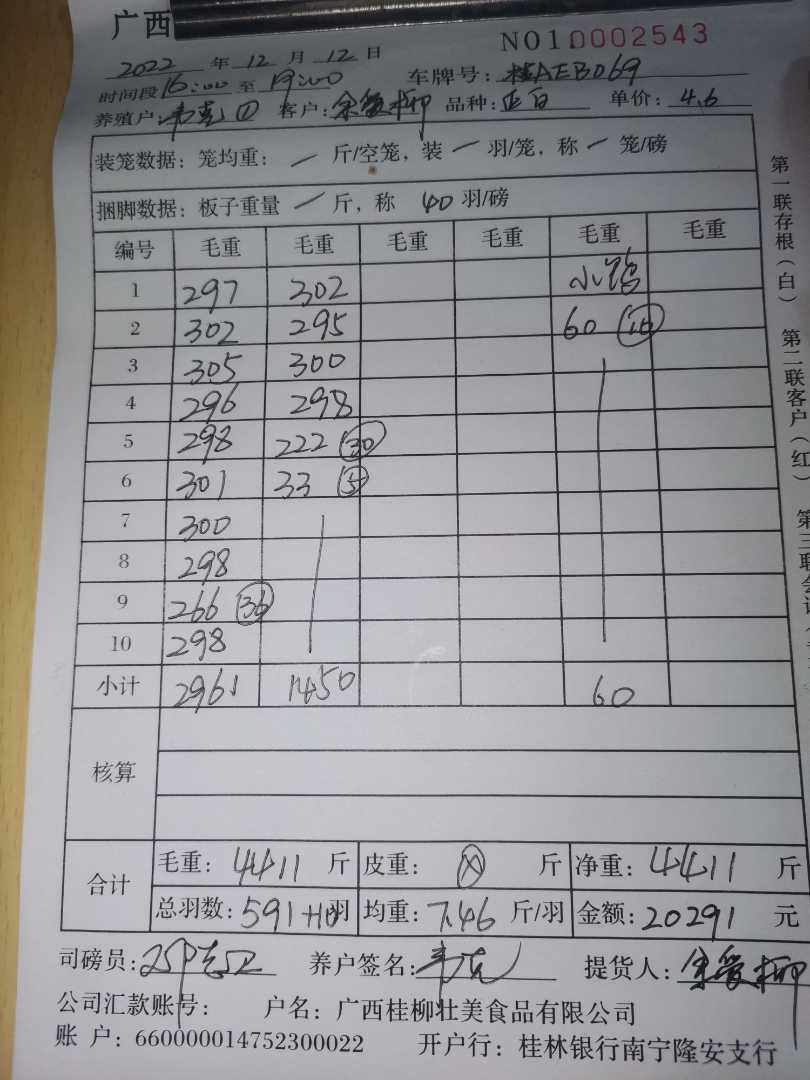 广西
NO10002543
2022年12月12日
时间段16:00至19:00 车牌号:桂AEB069
养殖户: 客户:余爱柳 品种:正白 单价:4.6
装笼数据:笼均重:一斤/空笼,装一羽/笼,称一笼/磅
捆脚数据:板子重量一斤,称40羽/磅
编号 毛重 毛重 毛重 毛重 毛重 毛重
1 297 302 小鸡
2 302 295 60
3 305 300
4 296 298
5 298 222 (30)
6 301 33 (5)
7 300
8 298
9 266 (36)
10 298
小计 2961 1450 60
核算
合计
毛重:4411斤 皮重: 斤 净重:4411斤
总羽数:591+10羽 均重:7.46斤/羽 金额:20291元
司磅员: 养户签名: 提货人:余爱柳
公司汇款账号: 户名:广西桂柳壮美食品有限公司
账 户:660000014752300022 开户行:桂林银行南宁隆安支行
第一联存根(白) 第二联客户(红) 第三联会计